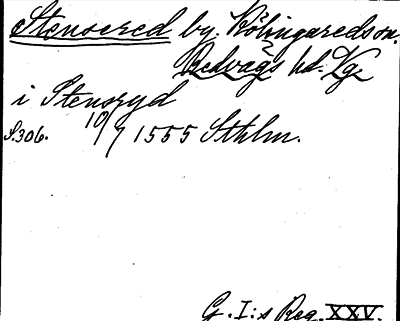 Stensered by. Kölingaredson.
Redvägs hd. Vg.
i Stensryd
S.306. 10/7 1555 Sthlm.
G. I:s Reg. XXV.